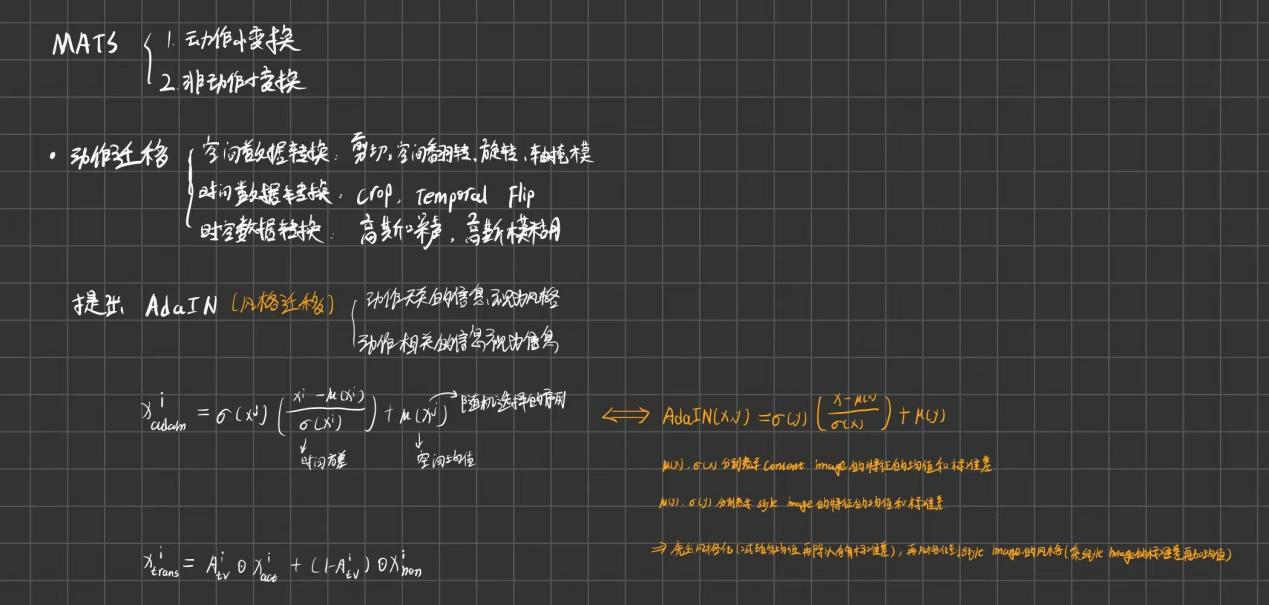 MATS { 1. 动作变换
2. 非动作变换
• 动作迁移 { 空间数据转换: 剪切, 空间翻转, 旋转, 轴掩模
时间数据转换: crop, Temporal Flip
时空数据转换: 高斯噪声, 高斯模糊
提出 AdaIN (风格迁移) { 动作无关的信息视为风格
动作相关的信息视为信息
x^i_adam = σ(x^j) ( (x^i - μ(x^i)) / σ(x^i) ) + μ(x^j) → 随机选择的序列
↓ 时间方差 ↓ 空间均值
⟺ AdaIN(x,y) = σ(y) ( (x-μ(x)) / σ(x) ) + μ(y)
μ(x), σ(x) 分别表示 content image 的特征的均值和标准差
μ(y), σ(y) 分别表示 style image 的特征的均值和标准差
⇒ 先去风格化(减去自身均值再除以自身标准差), 再风格化到 style image 的风格(乘 style image 的标准差再加均值)
x^i_trans = A^i_tv ⊙ x^i_act + (1-A^i_tv) ⊙ x^i_non